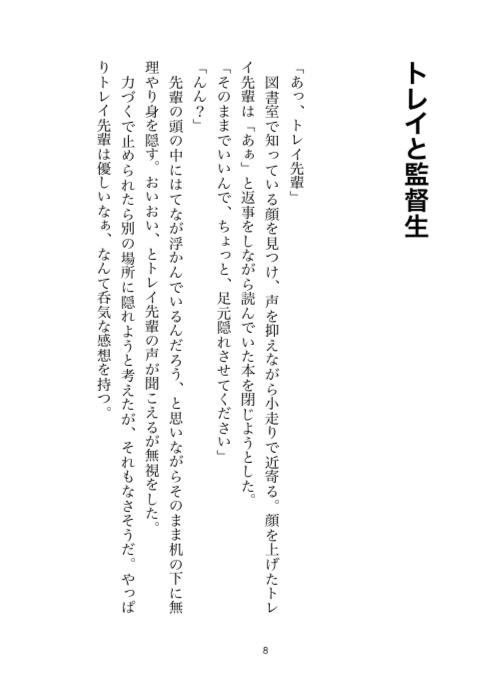 トレイと監督生
「あっ、トレイ先輩」
　図書室で知っている顔を見つけ、声を抑えながら小走りで近寄る。顔を上げたトレ
イ先輩は「あぁ」と返事をしながら読んでいた本を閉じようとした。
「そのままでいいんで、ちょっと、足元隠れさせてください」
「んん？」
　先輩の頭の中にはてなが浮かんでいるんだろう、と思いながらそのまま机の下に無
理やり身を隠す。おいおい、とトレイ先輩の声が聞こえるが無視をした。
　力づくで止められたら別の場所に隠れようと考えたが、それもなさそうだ。やっぱ
りトレイ先輩は優しいなぁ、なんて呑気な感想を持つ。
8